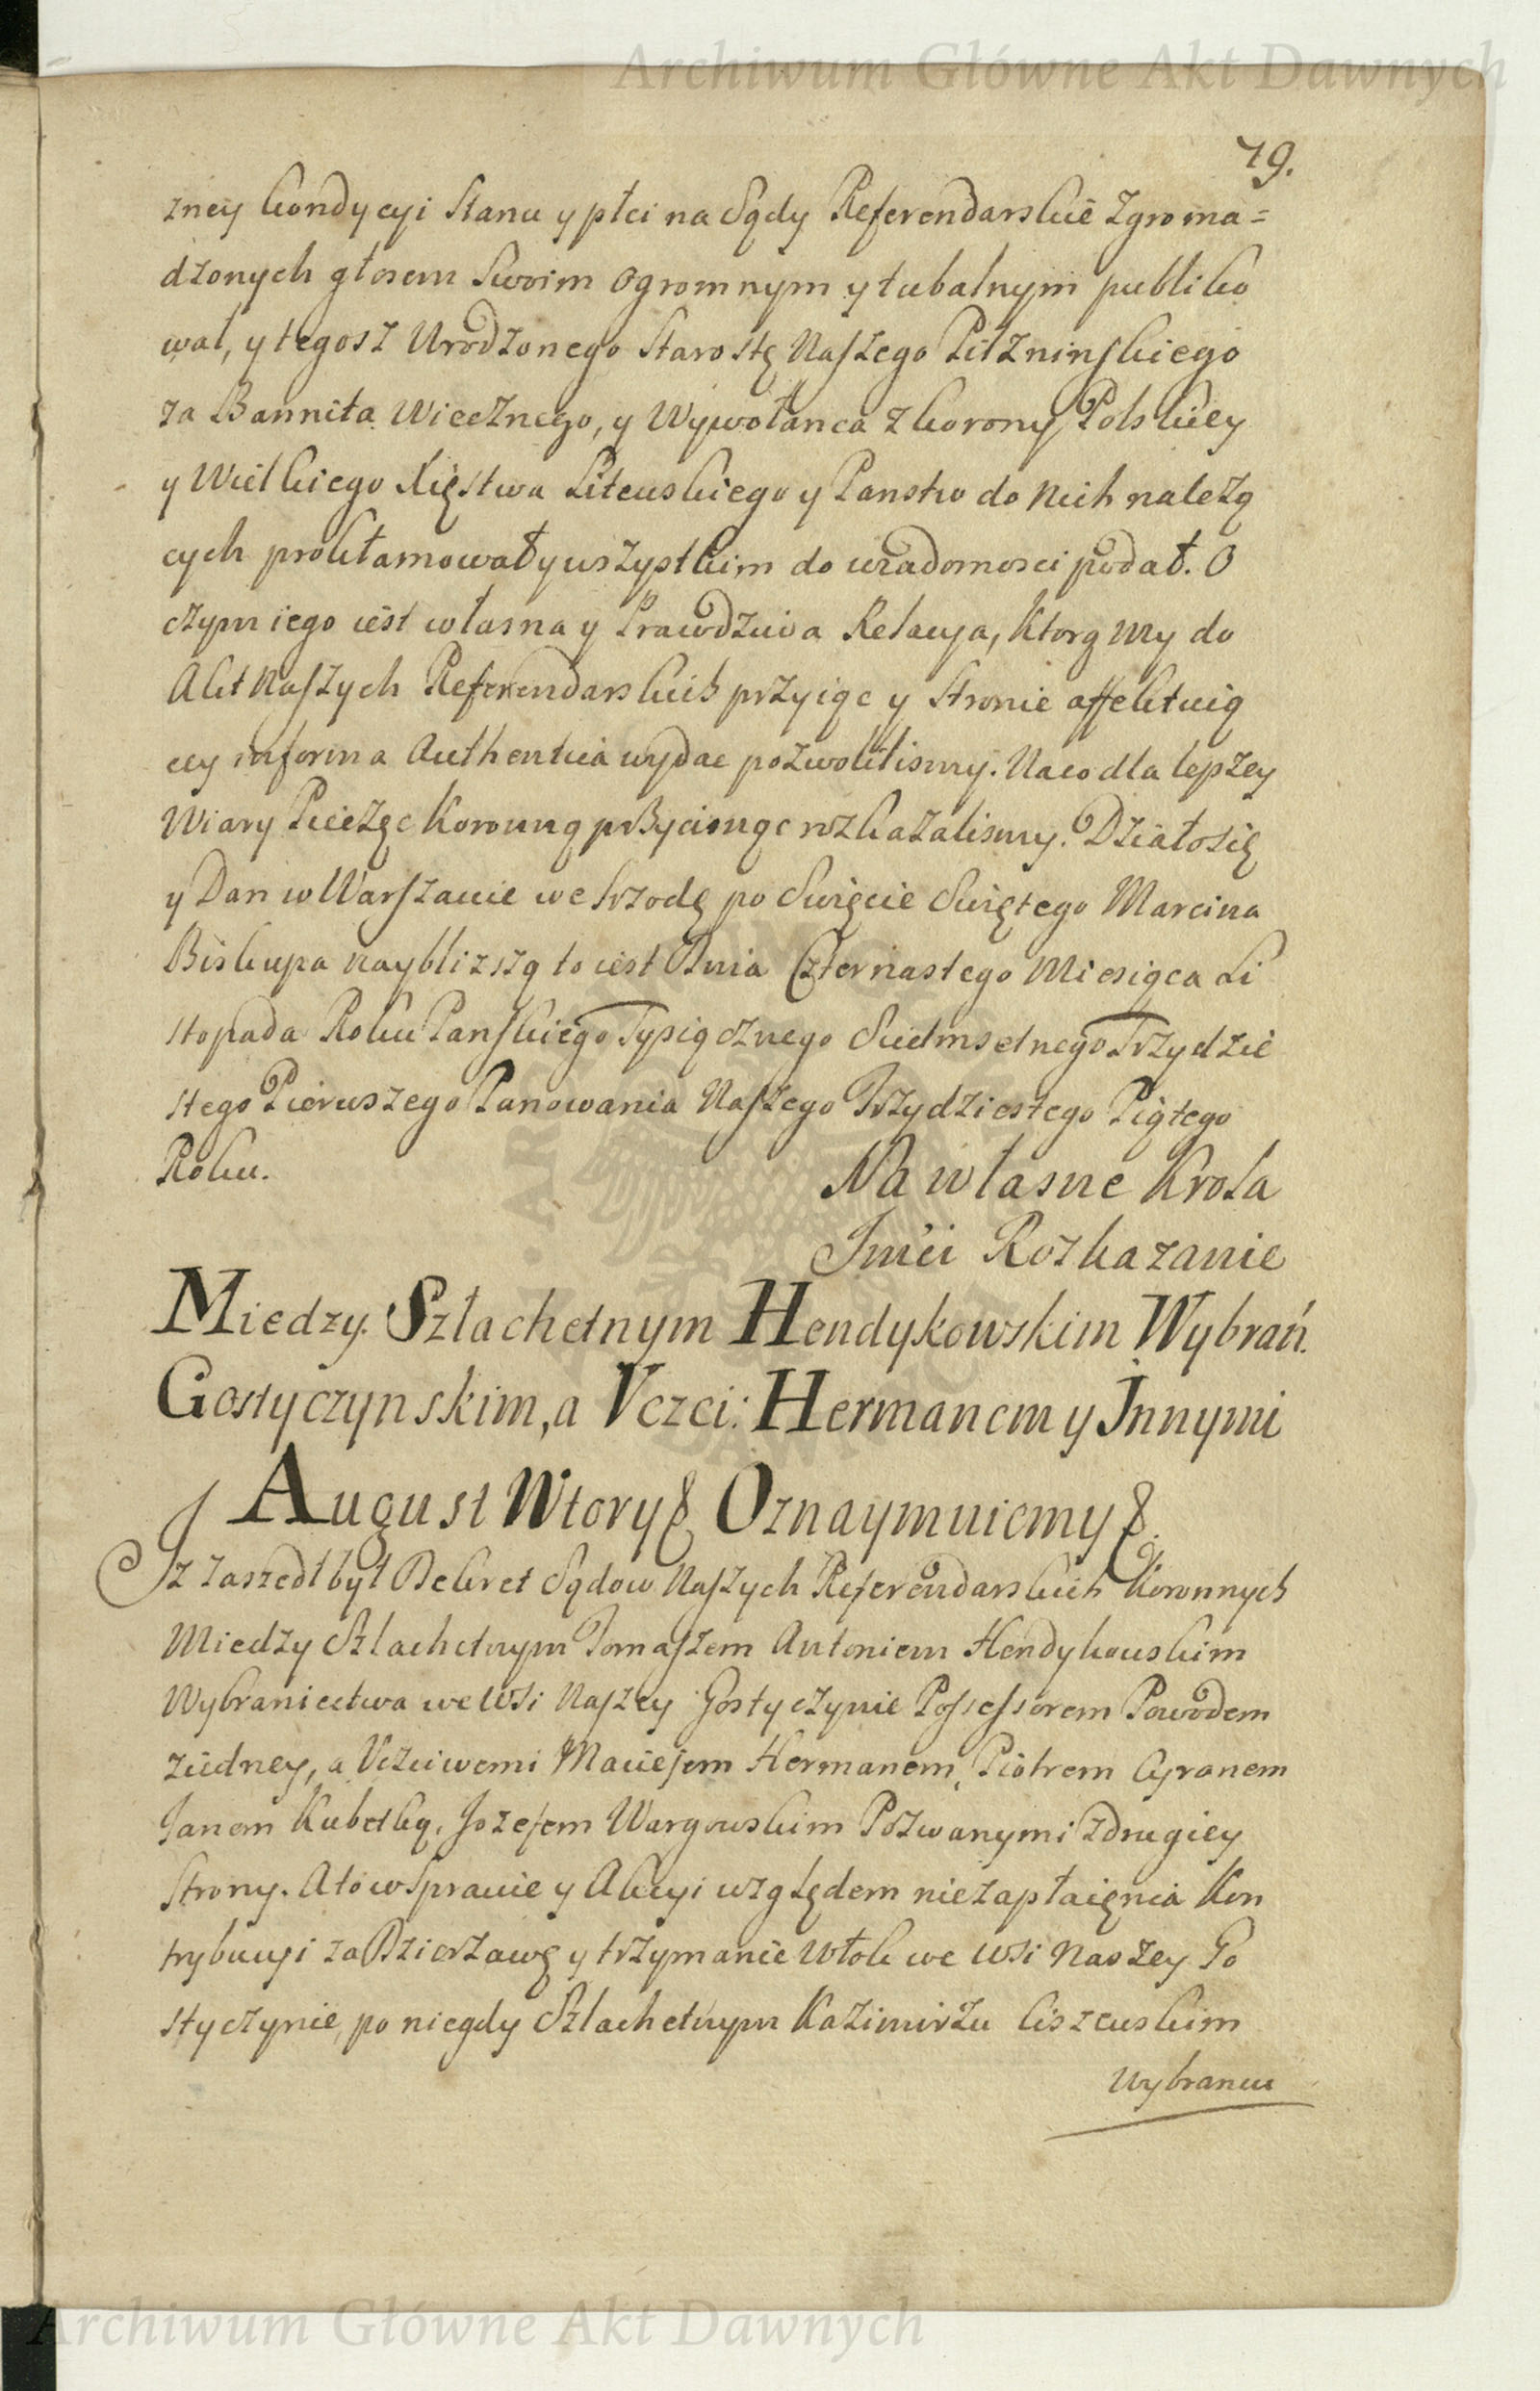 Archiwum Główne Akt Dawnych
79.
zney kondycyi Stanu y płci na Sądy Referendarskie zgroma=
dzonych głosem Swoim Ogromnym y tubalnym publiko
wał, y tegosz Urodzonego Starostę Naszego Pilzninskiego
za Bannita Wiecznego, y Wywołanca z korony Polskiey
y Wielkiego Xięstwa Litewskiego y Panstw do nich należą
cych proklamował y wszystkim do wiadomosci podał. O
czym iego iest własna y Prawdziwa Relacya, ktorą my do
Akt Naszych Referendarskich przyiąc y Stronie affektuią
cey in forma Authentica wydac pozwolilismy. Na co dla lepszey
Wiary Pieczęc koronną przycisnąc rozkazalismy. Działo się
y Dan w Warszawie we Srzodę po Swięcie Swiętego Marcina
Biskupa naybliższą to iest Dnia Czternastego Miesiąca Li
stopada Roku Panskiego Tysiącznego Siedmsetnego Trzydzie
stego Pierwszego Panowania Naszego Trzydziestego Piątego
Roku.
Na własne Krola
Jmci Rozkazanie
Miedzy Szlachetnym Hendykowskim Wybrań.
Gostyczynskim, a Vczci: Hermanem y Jnnymi
August Wtory & Oznaymuiemy &.
Jz zaszedł był Dekret Sądow Naszych Referendarskich Koronnych
Miedzy Szlachetnym Tomaszem Antoniem Hendykowskim
Wybraniectwa we wsi Naszey Gostyczynie Possessorem Powodem
ziedney, a Vczciwemi Maciejem Hermanem, Piotrem Cyranem
Janem Kubetką, Jozefem Wargowskim Pozwanymi zdrugiey
Strony. A to w Sprawie y Akcyi względem niezapłaięnia Kon
trybucyi za Dzierzawę y trzymanie Włok we wsi naszey Go
styczynie, po niegdy Szlachetnym Kazimirzu Liszewskim
Wybrancu
Archiwum Główne Akt Dawnych